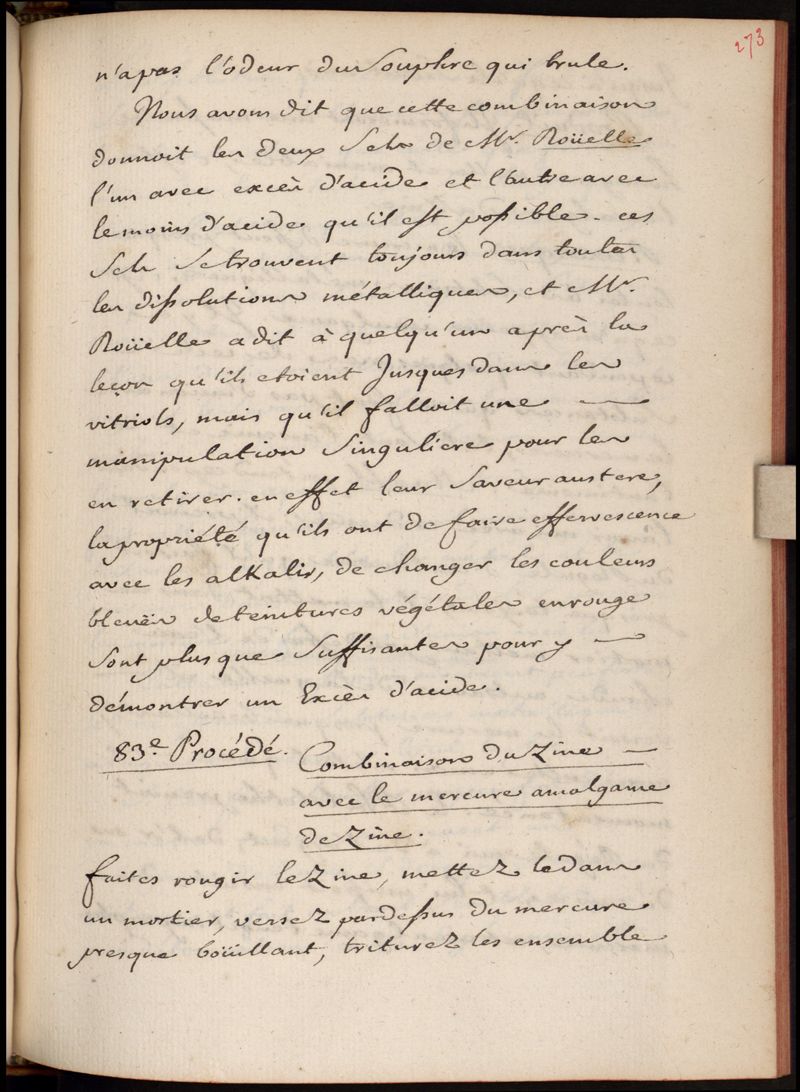 273
n'a pas l'odeur du Souphre qui brule.
Nous avons dit que cette combinaison
donnoit les deux Sels de Mr. Roüelle
l'un avec excès d'acide et l'autre avec
le moins d'acide qu'il est possible. ces
Sels Se trouvent toujours dans toutes
les dissolutions métalliques, et Mr.
Roüelle a dit à quelqu'un après la
leçon qu'ils etoient Jusques dans les
vitriols, mais qu'il falloit une —
manipulation Singuliere pour les
en retirer. en effet leur Saveur austere,
la propriété qu'ils ont de faire effervescence
avec les alKalis, de changer les couleurs
bleuës de teintures végétales en rouge
Sont plus que Suffisantes pour y —
démontrer un Excès d'acide.
83e. Procédé. Combinaison du Zinc —
avec le mercure amalgame
de Zinc.
faites rougir le Zinc, mettez le dans
un mortier, versez pardessus du mercure
presque boüillant, triturez les ensemble